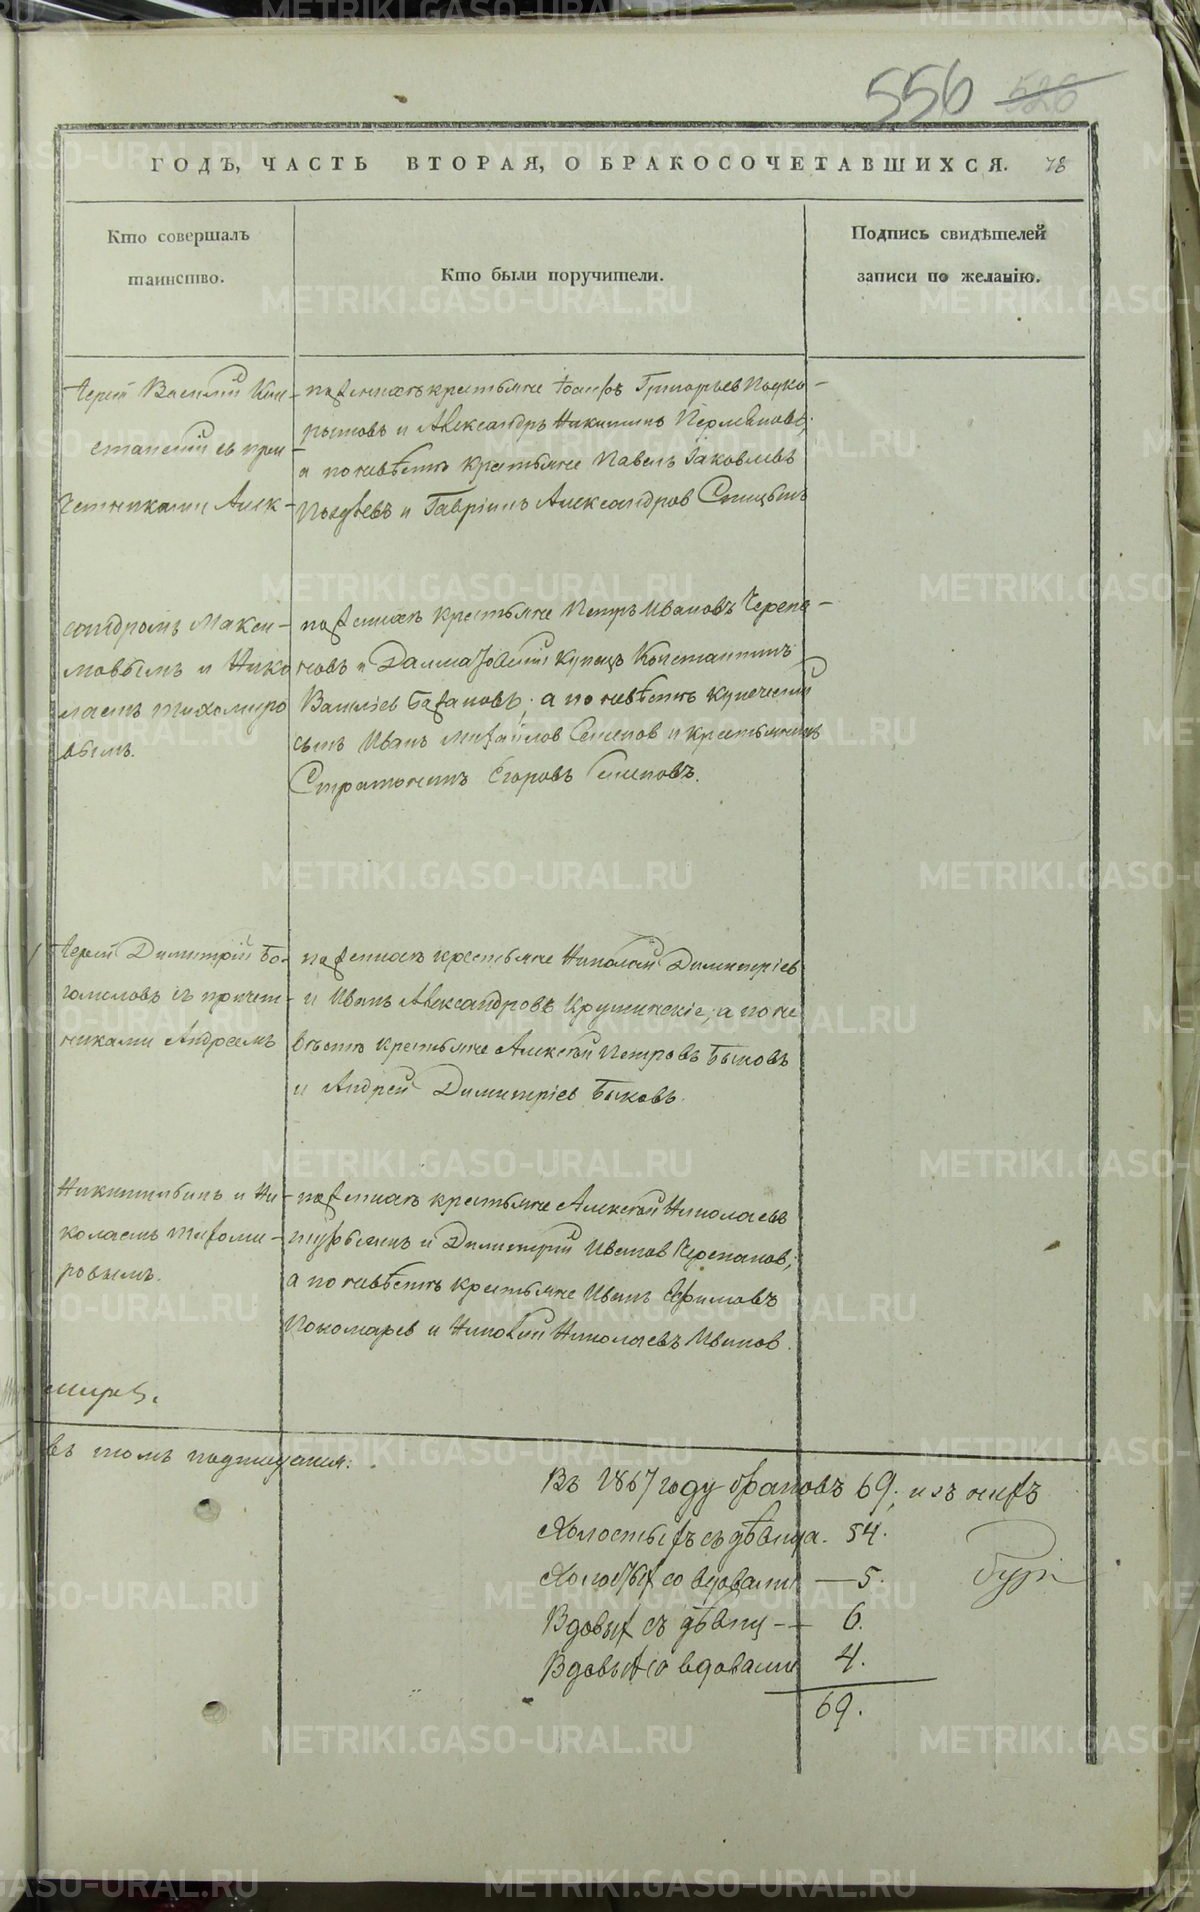 556 526
ГОДЪ, ЧАСТЬ ВТОРАЯ, О БРАКОСОЧЕТАВШИХСЯ. 78
Кто совершалъ
таинство.
Кто были поручители.
Подпись свидѣтелей
записи по желанію.
Іерей Василій Кон-
станскій съ при-
четниками Алек-
по женихѣ крестьяне Іосифъ Григорьев
и Александръ Никитинъ Пермяковъ;
а по невѣстѣ крестьяне Павелъ Іаковлевъ
и Гавріилъ Александров Спицынъ
сандромъ Макси-
мовымъ и Нико
лаемъ Тихомиро
вымъ.
по женихѣ крестьяне Петръ Ивановъ Черепа-
новъ и Далматовскій купецъ Константинъ
Василіев Бажановъ; а по невѣстѣ купеческій
сынъ Иванъ Михайлов Семенов и крестьянинъ
Стратоникъ Егоровъ Семеновъ.
Іерей Димитрій Бо-
гомоловъ съ причет-
никами Андреемъ
по женихѣ крестьяне Николай Димитріев
и Иванъ Александровъ Крутинскіе; а по не
вѣстѣ крестьяне Алексѣй Петровъ Быковъ
и Андрей Димитріев Быковъ.
Никитинымъ и Ни-
колаемъ Тихоми-
ровымъ.
по женихѣ крестьяне Алексѣй Николаевъ
и Димитрій Иванов Черепанов;
а по невѣстѣ крестьяне Иванъ Ефимовъ
Пономарев и Николай Николаевъ Иванов.
въ томъ подпишемся:
Въ 1867 году браковъ 69, изъ нихъ
Холостыхъ съ дѣвица. 54.
Холостых со вдовами — 5.
Вдовых съ дѣвиц — 6.
Вдовых со вдовами 4.
69.
METRIKI.GASO-URAL.RU